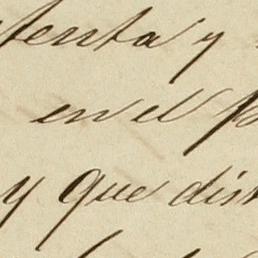 tenta y
en el
y que dis